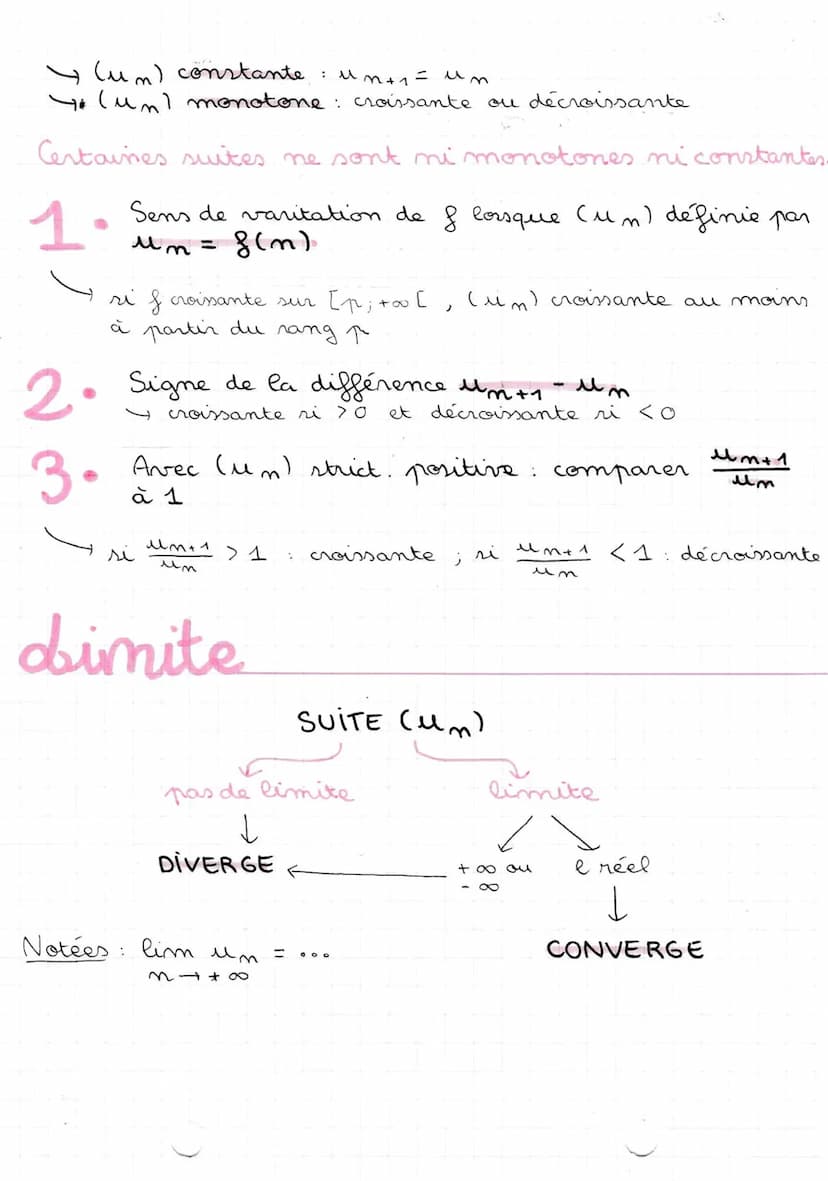 → (un) constante : un+1 = un
→ (un) monotone : croissante ou décroissante
Certaines suites ne sont ni monotones ni constantes.
1. Sens de varitation de f lorsque (un) définie par
un = f(n).
→ si f croissante sur [p; +∞[ , (un) croissante au moins
à partir du rang p
2. Signe de la différence un+1 - un
→ croissante si >0 et décroissante si <0
3. Avec (un) strict. positive : comparer un+1/un
à 1
→ si un+1/un > 1 : croissante ; si un+1/un < 1 : décroissante
Limite
SUITE (un)
pas de limite limite
↓
DIVERGE ← +∞ ou l réel
- ∞
↓
Notées : lim un = ... CONVERGE
n → +∞